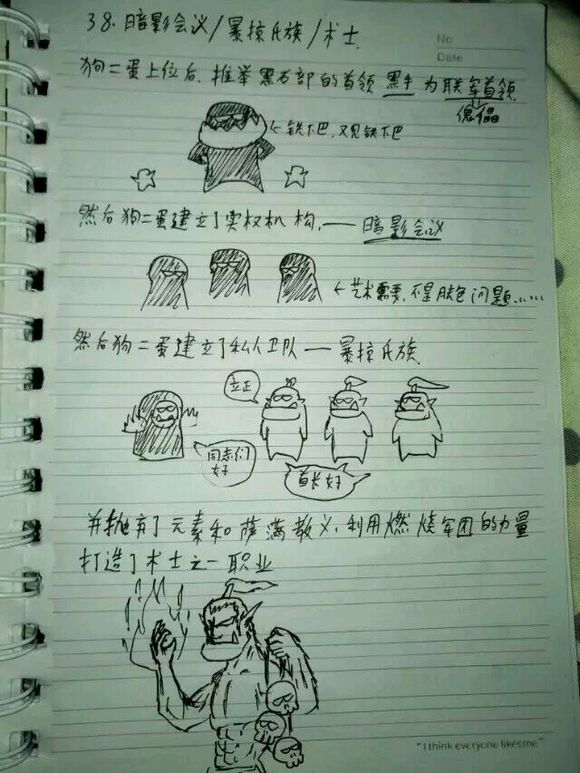 38. 暗影会议/暴掠氏族/术士.
No
Date
狗二蛋上位后, 推举黑石部的首领 黑手 为联军首领.
傀儡
←铁下巴,又见铁下巴
然后狗二蛋建立了实权机构,——暗影会议
←艺术需要,不是肤色问题......
然后狗二蛋建立了私人卫队——暴掠氏族.
立正
同志们
好
首长好
并抛弃了元素和萨满教义,利用燃烧军团的力量
打造了术士之一职业
"I think everyone likesme"